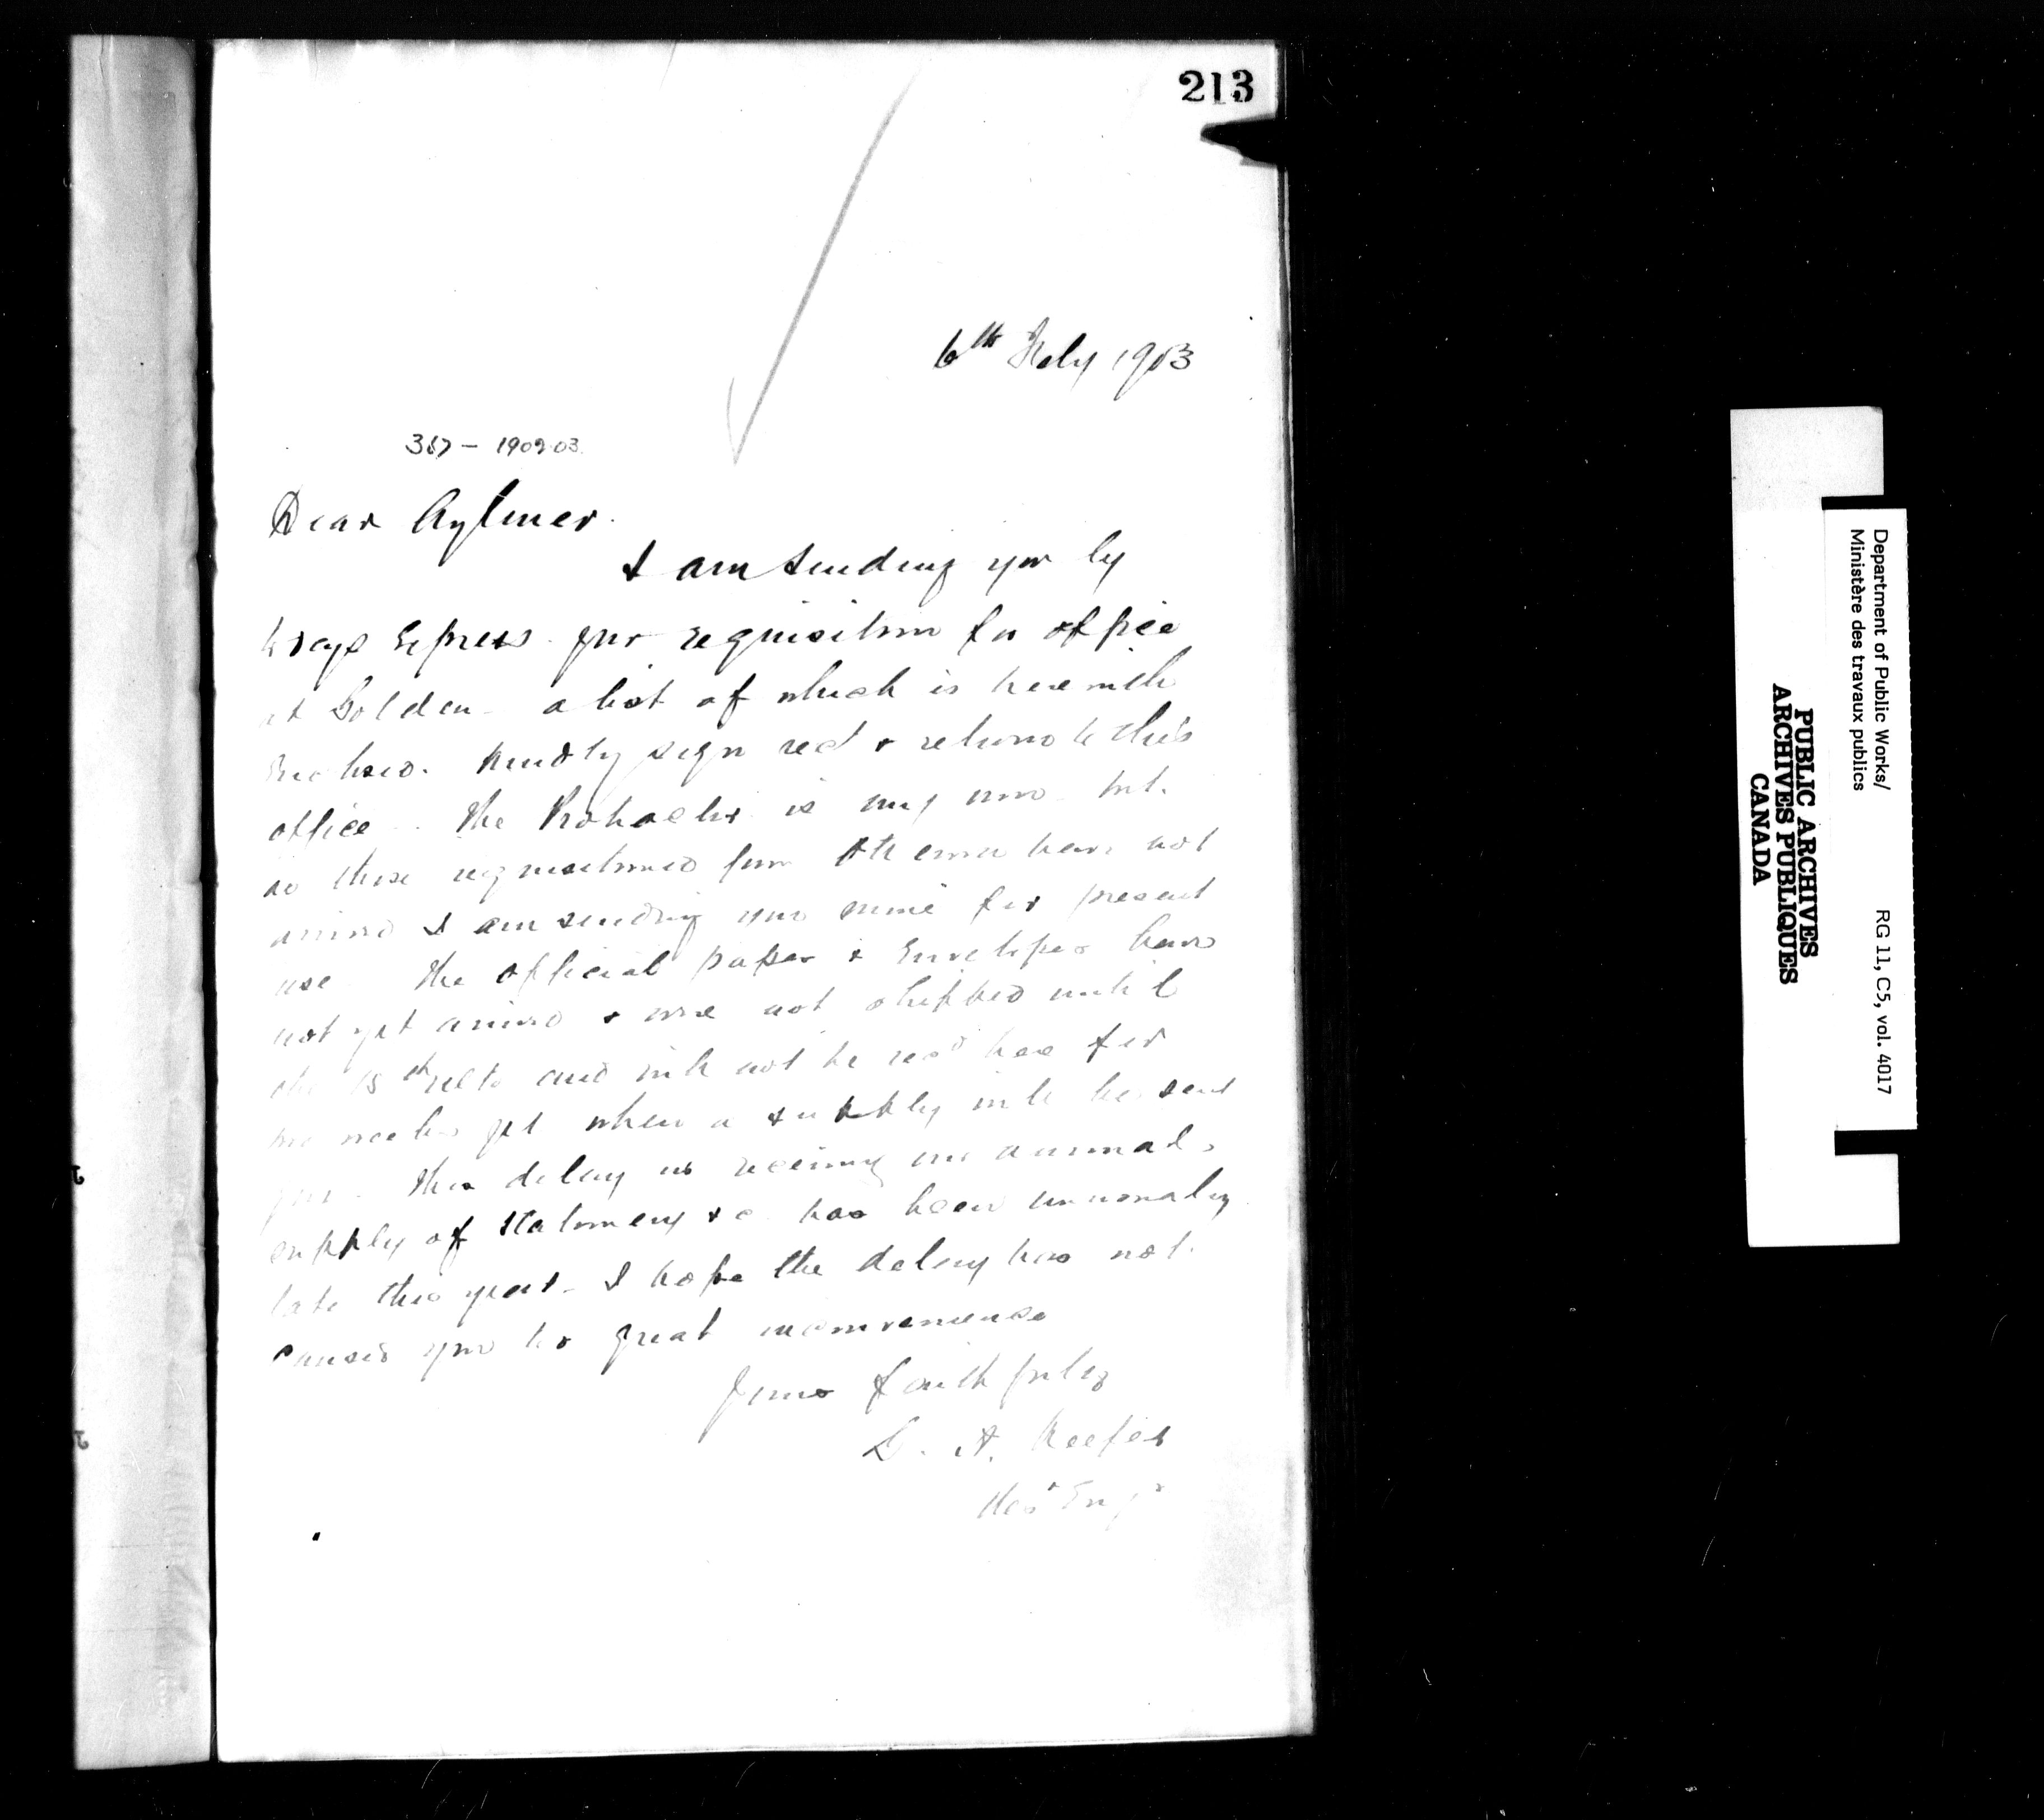 213
6th Feby 1903
367 - 1902-03
Dear Aylmer.
I am sending you by
todays Express your requisition for office
at Golden - a list of which is herewith
Enclosed. Kindly sign rect & return to this
office. The Protractor is my own but
as those requisitioned from Ottawa have not
arrived I am sending you mine for present
use. The official paper & Envelopes have
not yet arrived & were not shipped until
the 15th ulto and will not be recd here for
two weeks yet when a supply will be sent
you. The delay in receiving our annual
supply of Stationery &c has been unusually
late this year. I hope the delay has not
caused you too great inconvenience
Yours faithfully
G. A. Keefer
Rest Engr
Department of Public Works/
Ministère des travaux publics
RG 11, C5, vol. 4017
PUBLIC ARCHIVES
ARCHIVES PUBLIQUES
CANADA